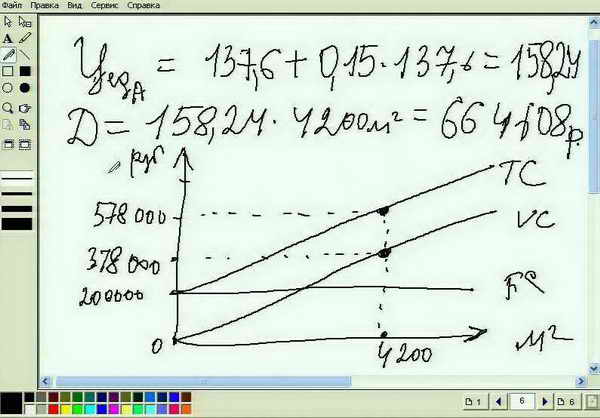 Файл Правка Вид Сервис Справка
Цед_А = 137,6 + 0,15 · 137,6 = 158,24
Д = 158,24 · 4200 м² = 664608 р.
руб
TC
578 000
VC
378 000
FC
200000
0
4200
М²
A
1
6
6